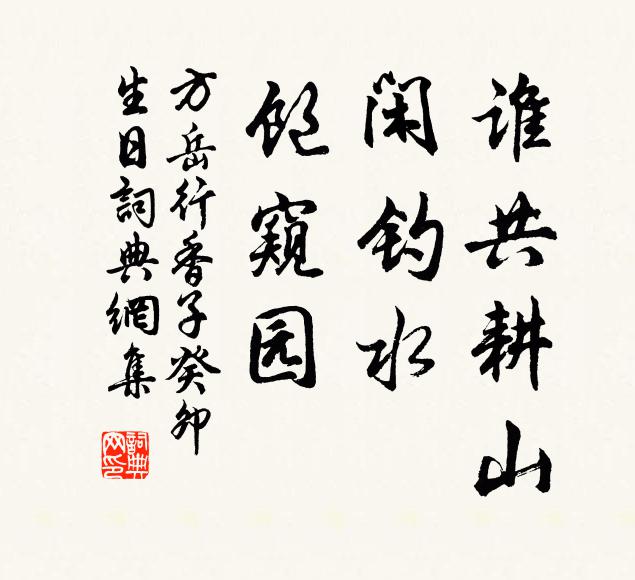 谁共耕山
闲钓水
饱窥园
方岳行香子癸卯
生日詞典網集
詞典网印